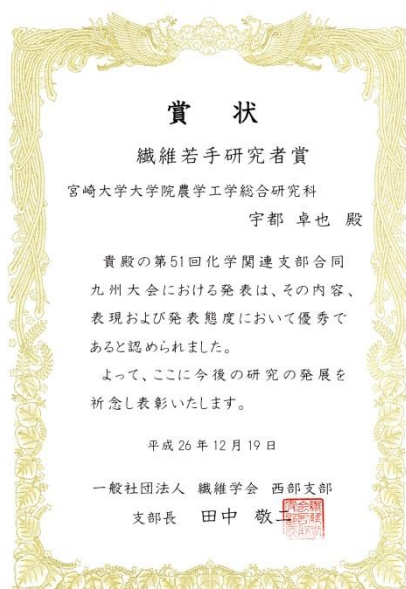 賞 状
繊維若手研究者賞
宮崎大学大学院農学工学総合研究科
宇都 卓也 殿
貴殿の第51回化学関連支部合同
九州大会における発表は、その内容、
表現および発表態度において優秀で
あると認められました。
よって、ここに今後の研究の発展を
祈念し表彰いたします。
平成26年12月19日
一般社団法人 繊維学会 西部支部
支部長 田中 敬二